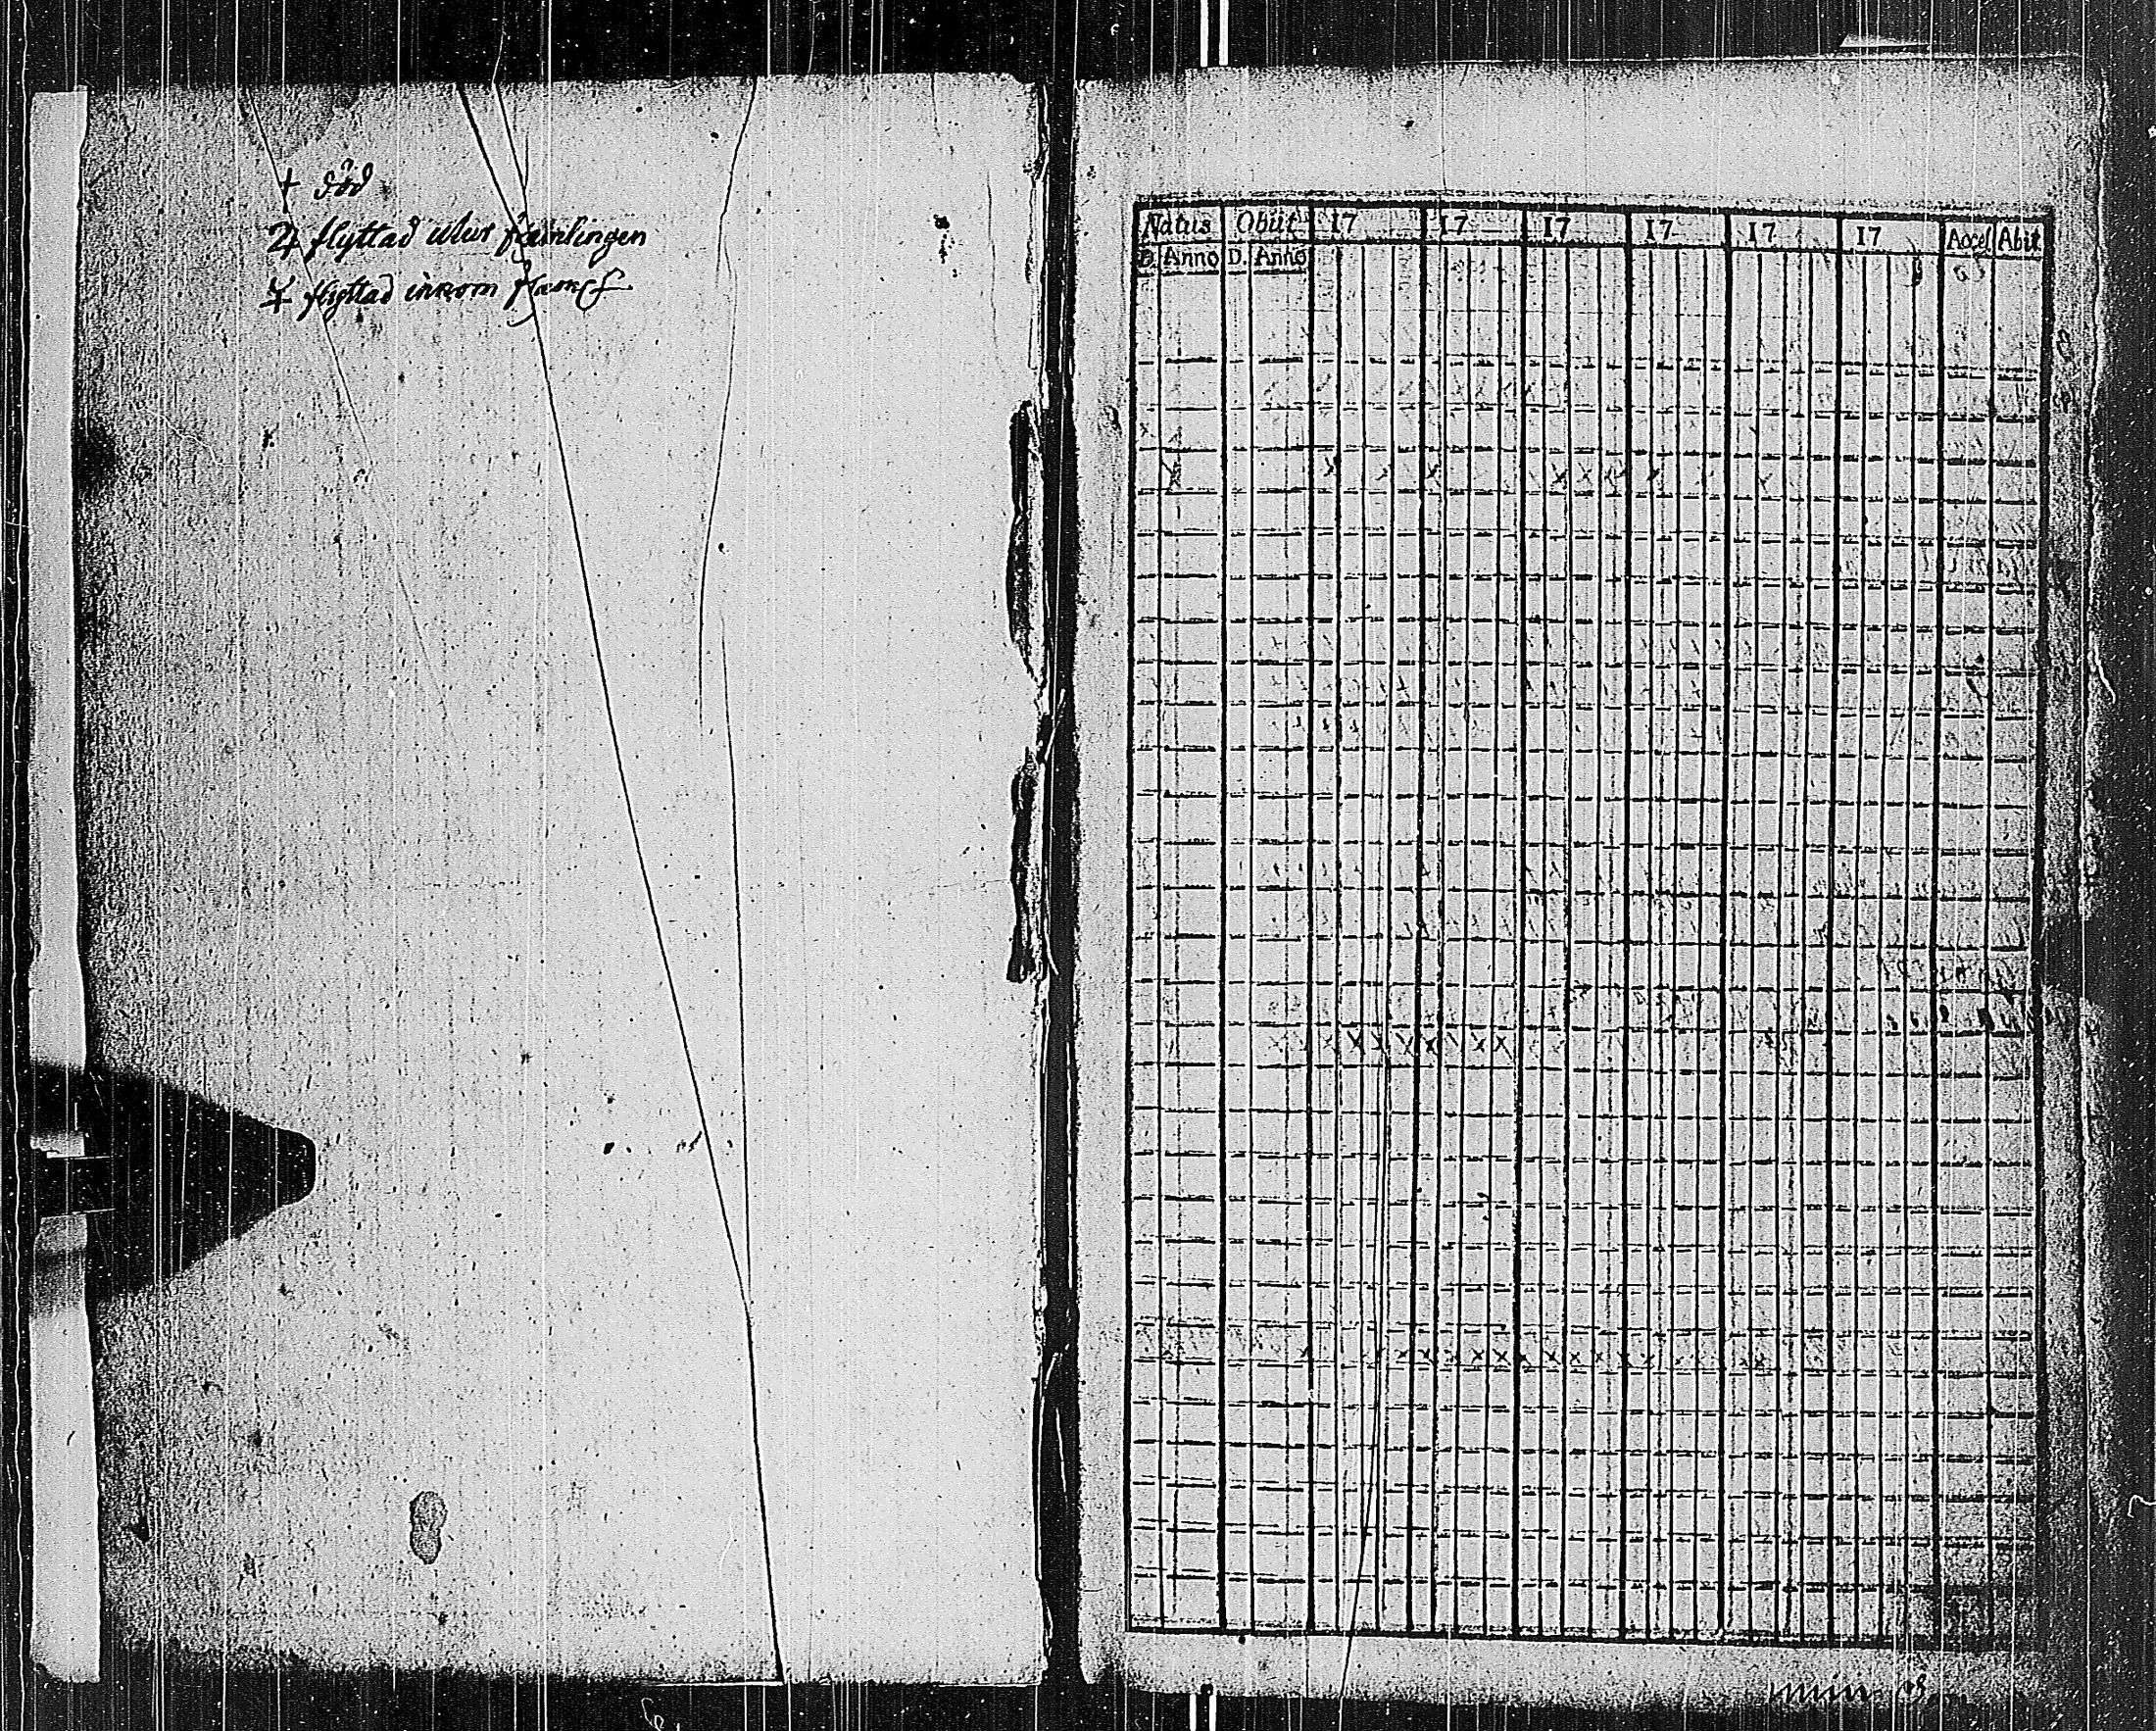 † död
♃ flyttad utur församlingen
☿ flyttad inkom förs
Natus Obiit 17 17 17 17 17 17 Acces Abit
D. Anno D. Anno